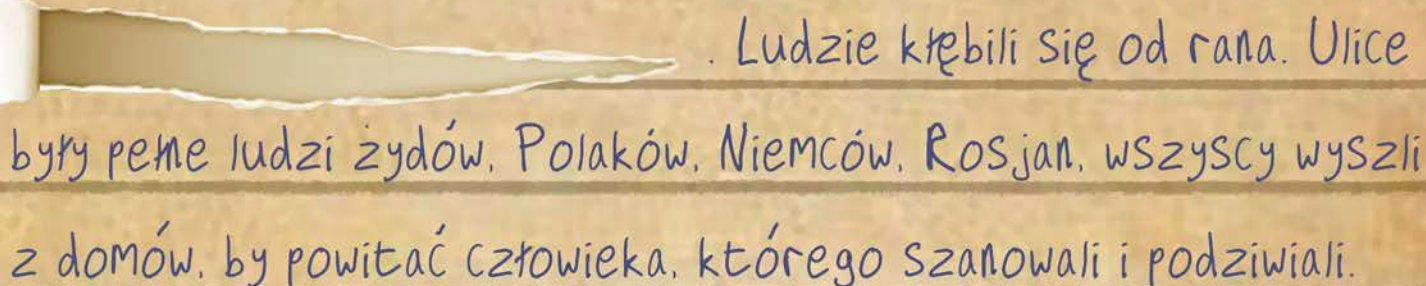 . Ludzie kłębili się od rana. Ulice
były pełne ludzi żydów, Polaków, Niemców, Rosjan, wszyscy wyszli
z domów, by powitać człowieka, którego szanowali i podziwiali.